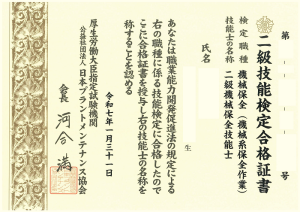 第　　　　号
二級技能検定合格証書
検定職種　機械保全（機械系保全作業）
技能士の名称　二級機械保全技能士
氏名
生
あなたは職業能力開発促進法の規定による
右の職種に係る技能検定に合格したので
ここに合格証書を授与し右の技能士の名称を
称することを認める
令和七年一月三十一日
厚生労働大臣指定試験機関
公益社団法人日本プラントメンテナンス協会
会長 河合 満